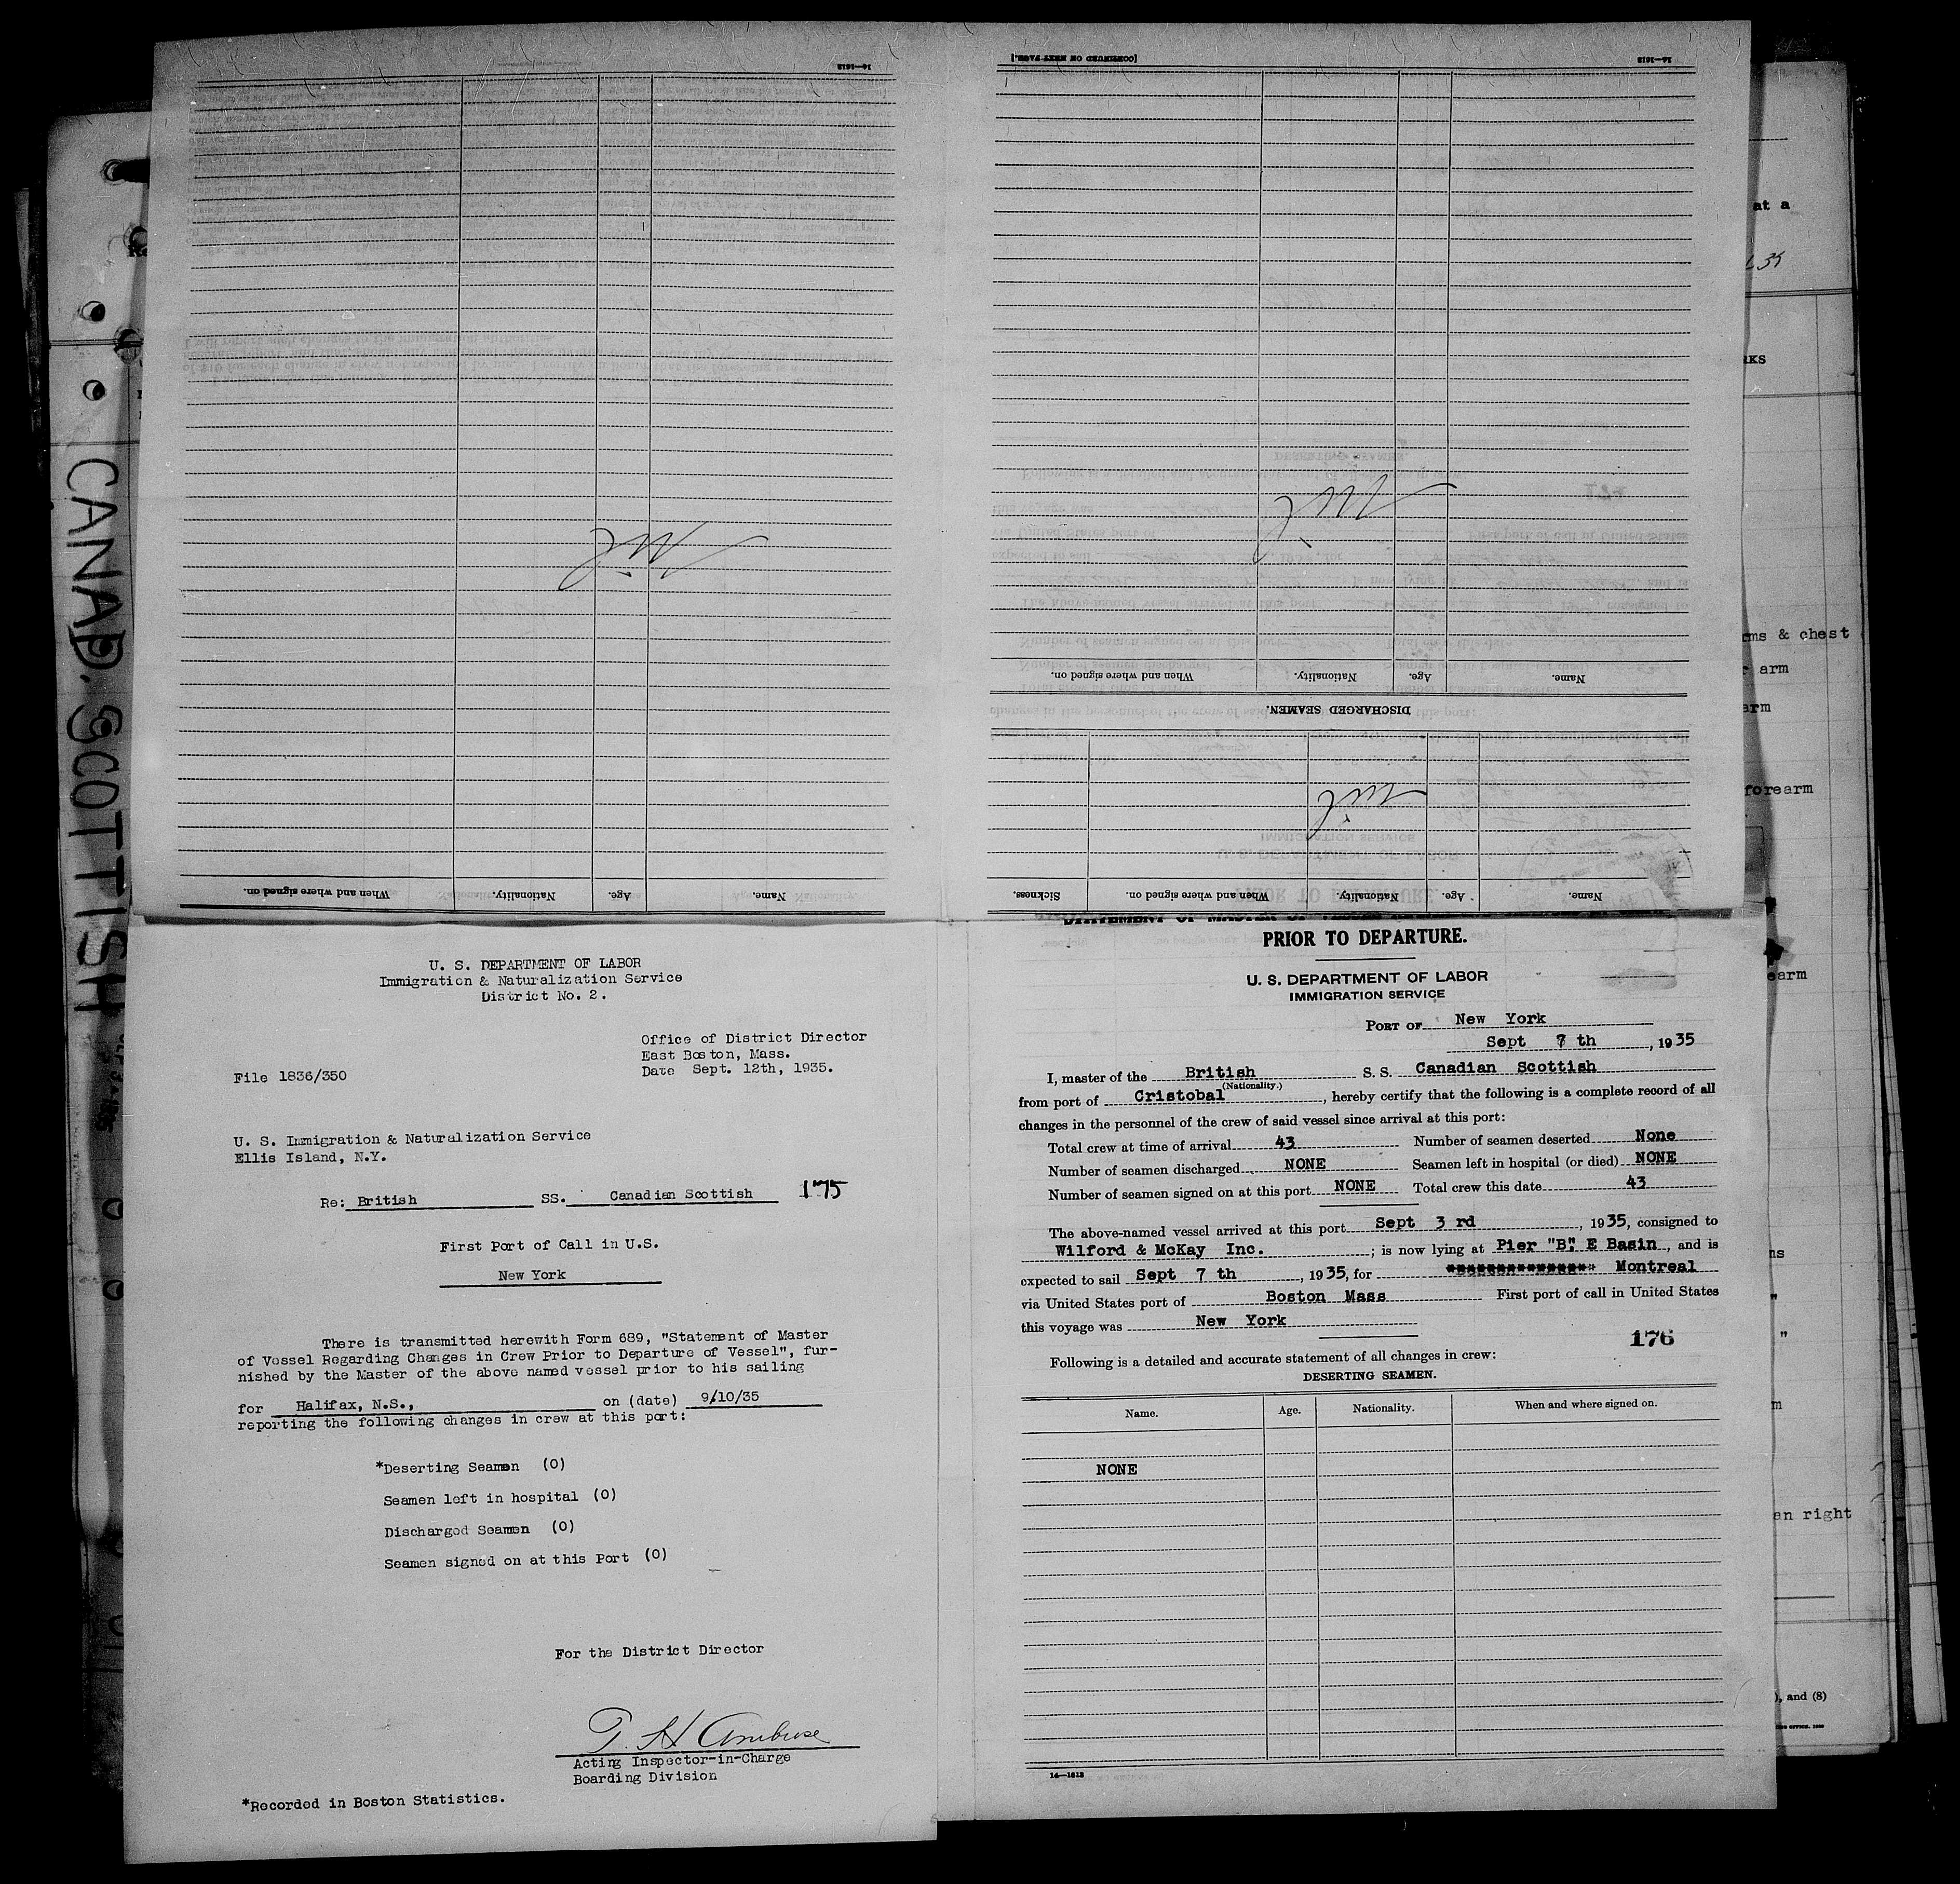 14—1612
[CONTINUED ON NEXT PAGE.]
14—1612
Nil
Nil
Name.
Age.
Nationality.
When and where signed on.
DISCHARGED SEAMEN.
nil
Name.
Age.
Nationality.
When and where signed on.
Name.
Age.
Nationality.
When and where signed on.
Sickness.
CANAD. SCOTTISH
at a
RKS
rms & chest
r arm
arm
forearm
earm
an right
), and (8)
U. S. DEPARTMENT OF LABOR
Immigration & Naturalization Service
District No. 2.
Office of District Director
East Boston, Mass.
Date Sept. 12th, 1935.
File 1836/350
U. S. Immigration & Naturalization Service
Ellis Island, N.Y.
Re: British SS. Canadian Scottish 175
First Port of Call in U.S.
New York
There is transmitted herewith Form 689, "Statement of Master
of Vessel Regarding Changes in Crew Prior to Departure of Vessel", fur-
nished by the Master of the above named vessel prior to his sailing
for Halifax, N.S., on (date) 9/10/35
reporting the following changes in crew at this port:
*Deserting Seamen (0)
Seamen left in hospital (0)
Discharged Seamen (0)
Seamen signed on at this Port (0)
For the District Director
T. H. Ambrose
Acting Inspector-in-Charge
Boarding Division
*Recorded in Boston Statistics.
PRIOR TO DEPARTURE.
U. S. DEPARTMENT OF LABOR
IMMIGRATION SERVICE
PORT OF New York
Sept 7 th, 1935
I, master of the British S. S. Canadian Scottish
(Nationality.)
from port of Cristobal, hereby certify that the following is a complete record of all
changes in the personnel of the crew of said vessel since arrival at this port:
Total crew at time of arrival 43 Number of seamen deserted None
Number of seamen discharged NONE Seamen left in hospital (or died) NONE
Number of seamen signed on at this port NONE Total crew this date 43
The above-named vessel arrived at this port Sept 3 rd, 1935, consigned to
Wilford & McKay Inc. ; is now lying at Pier "B", E Basin, and is
expected to sail Sept 7 th, 1935, for Montreal
via United States port of Boston Mass First port of call in United States
this voyage was New York
176
Following is a detailed and accurate statement of all changes in crew:
DESERTING SEAMEN.
Name. Age. Nationality. When and where signed on.
NONE
14—1612